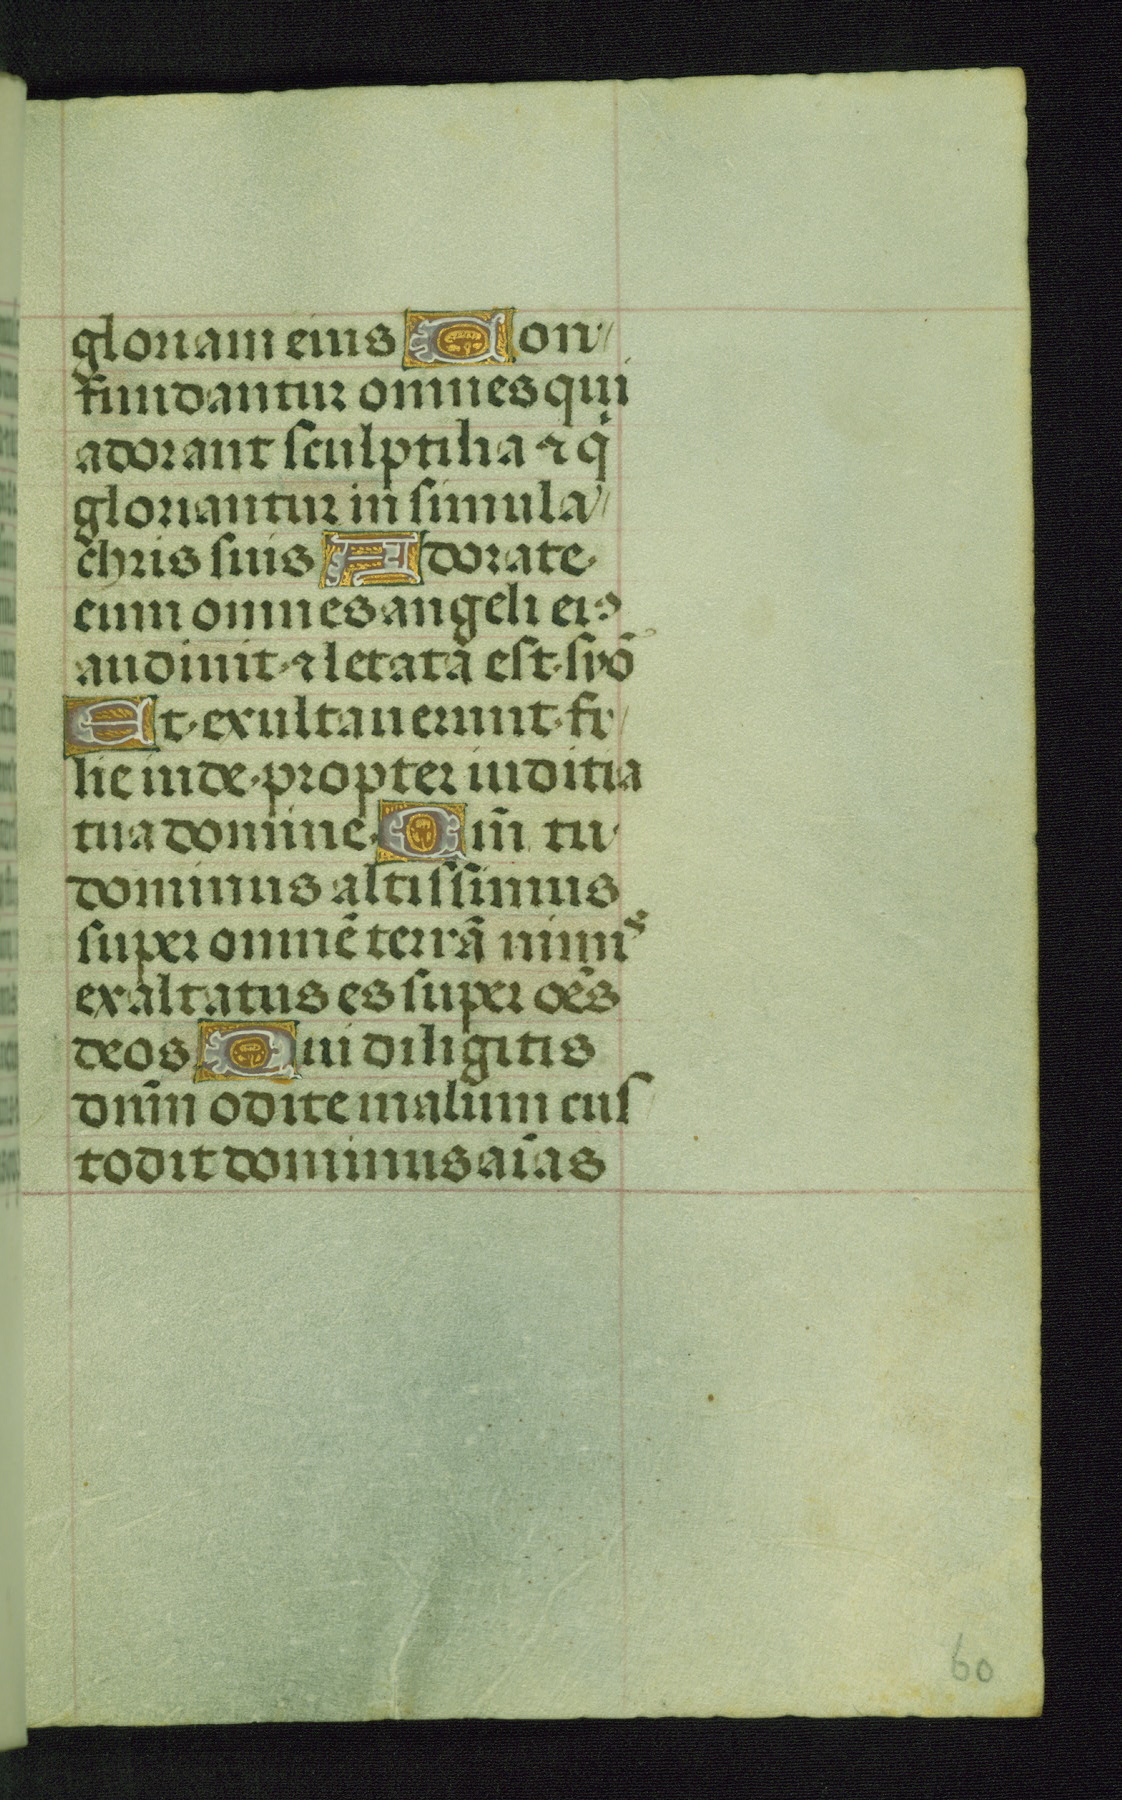 gloriam eius Con
fundantur omnes qui
adorant sculptilia ⁊ q̇
gloriantur in simula
chris suis Adorate
eum omnes angeli ei9
audiuit ⁊ letatā est syō
Et exultauerunt fi
lie iude propter iuditia
tua domine Qm̄ tu
dominus altissimus
super omnē terrā nimis
exaltatus es super oēs
deos Qui diligitis
dnm̄ odite malum cus
todit dominus aīas
60